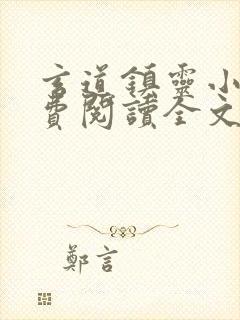 玄道鎮靈小
費閱讀全文
鄭言